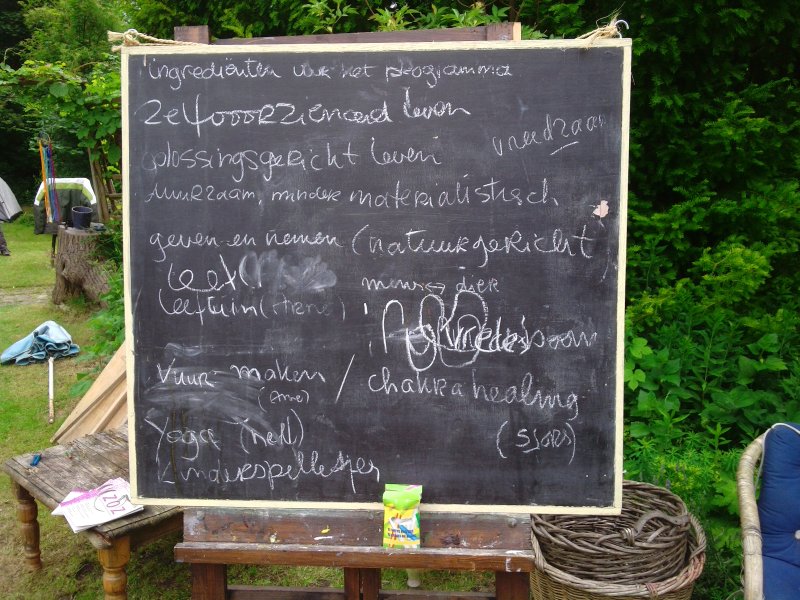 ingrediënten voor het programma
zelfvoorzienend leven
vreedzaam
oplossingsgericht leven
duurzaam, minder materialistisch
geven en nemen (natuurgericht)
mens ↔ dier
leeftuin (Arne)
vuur maken / chakra healing
(Arne)
yoga (nell) (sjors)
kinderspelletjes